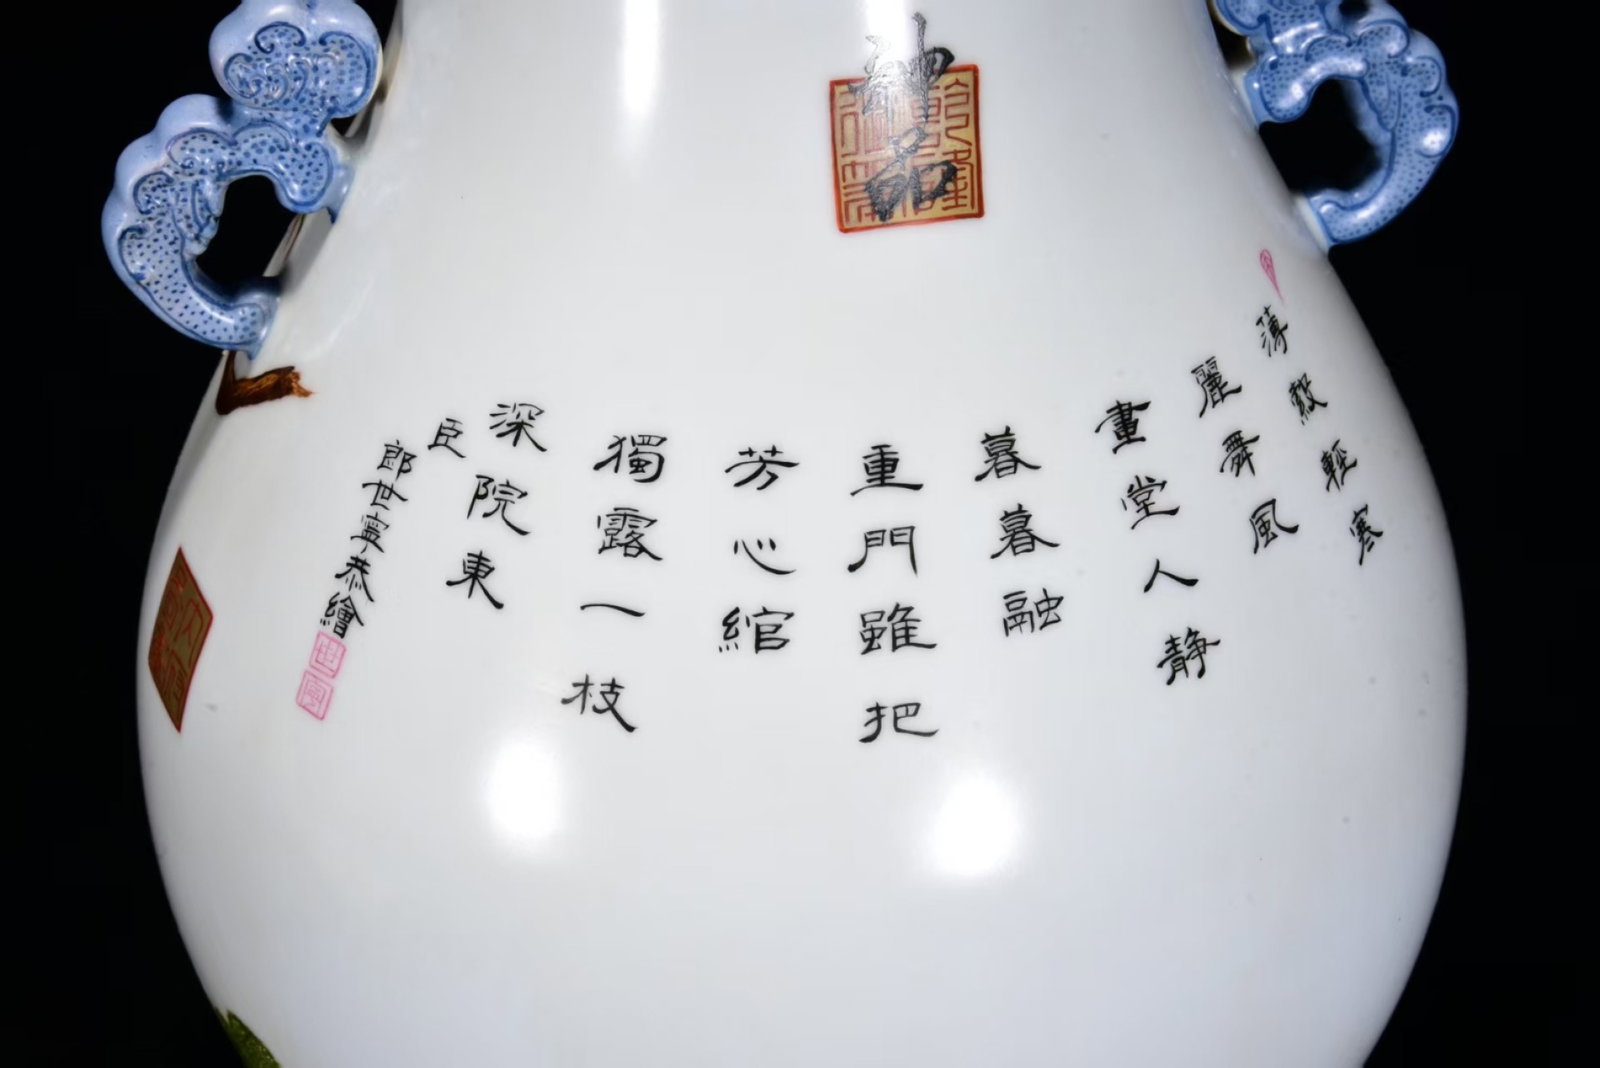 神品
薄縠輕寒
麗舞風
畫堂人靜
暮暮融
重門雖把
芳心綰
獨露一枝
深院東
臣
郎世寧恭繪